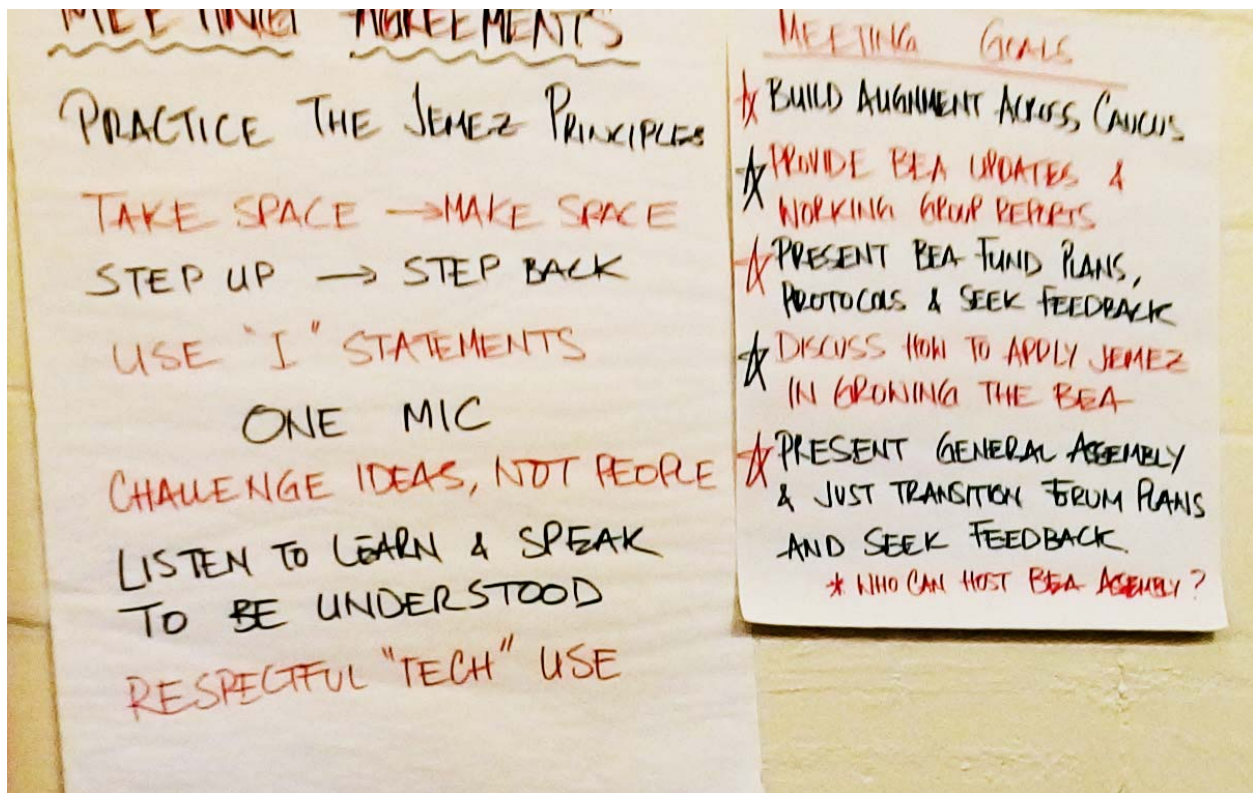 MEETING AGREEMENTS
PRACTICE THE JEMEZ PRINCIPLES
TAKE SPACE → MAKE SPACE
STEP UP → STEP BACK
USE "I" STATEMENTS
ONE MIC
CHALLENGE IDEAS, NOT PEOPLE
LISTEN TO LEARN & SPEAK
TO BE UNDERSTOOD
RESPECTFUL "TECH" USE
MEETING GOALS
☆ BUILD ALIGNMENT ACROSS CAUCUS
☆ PROVIDE BEA UPDATES &
WORKING GROUP REPORTS
☆ PRESENT BEA FUND PLANS,
PROTOCOLS & SEEK FEEDBACK
☆ DISCUSS HOW TO APPLY JEMEZ
IN GROWING THE BEA
☆ PRESENT GENERAL ASSEMBLY
& JUST TRANSITION FORUM PLANS
AND SEEK FEEDBACK.
* WHO CAN HOST BEA ASSEMBLY?